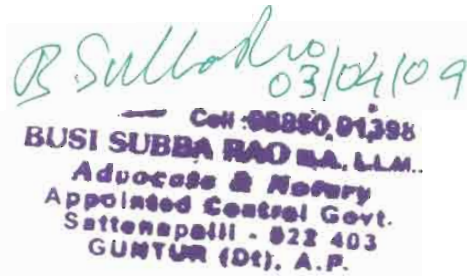 B. Subba Rao
03/04/09
Cell : 98850, 91,398
BUSI SUBBA RAO B.A., L.L.M..
Advocate & Notary
Appointed Central Govt.
Sattenapalli - 522 403
GUNTUR (Dt), A.P.